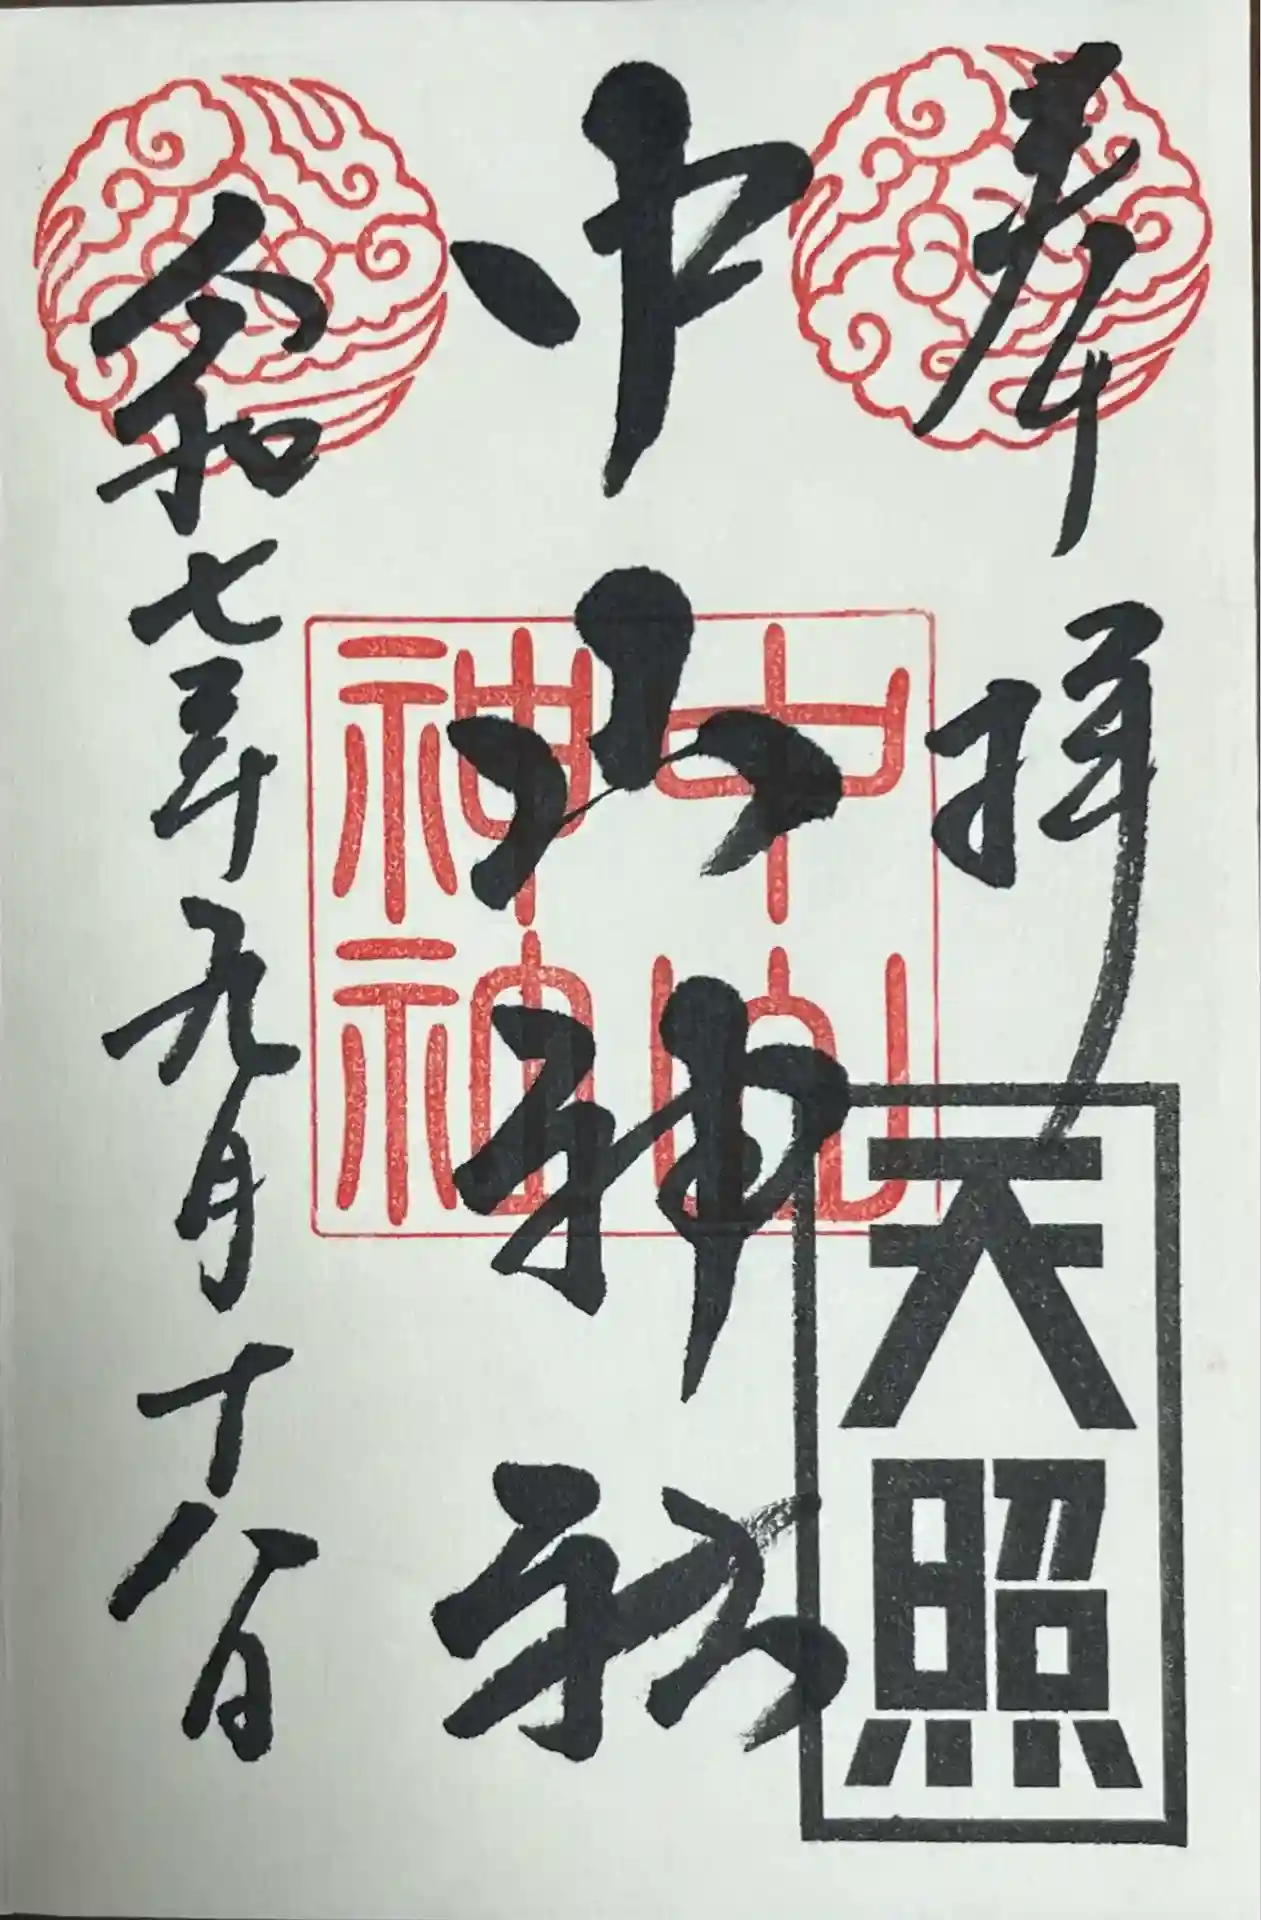 奉拝
天照
中山神社
中山
神
令和七年九月十八日